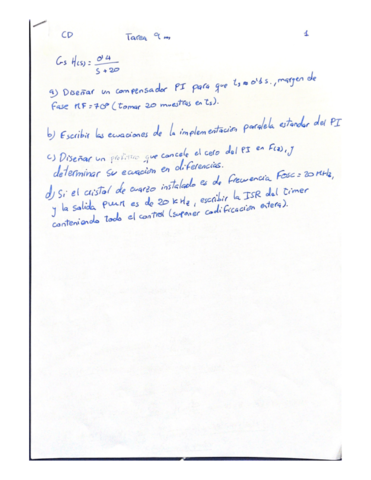 CD Tarea 9 1
Gs H(s) = 0'2 / s+20
a) Diseñar un compensador PI para que ts = 0'8 s., margen de
Fase MF = 70º (tomar 20 muestras en ts).
b) Escribir las ecuaciones de la implementación paralela estandar del PI
c) Diseñar un que cancele el cero del PI en F(z), y
determinar su ecuación en diferencias.
d) Si el cristal de cuarzo instalado es de frecuencia Fosc = 20 MHz,
y la salida PWM es de 20 kHz, escribir la ISR del timer
conteniendo todo el control (suponer codificación entera).